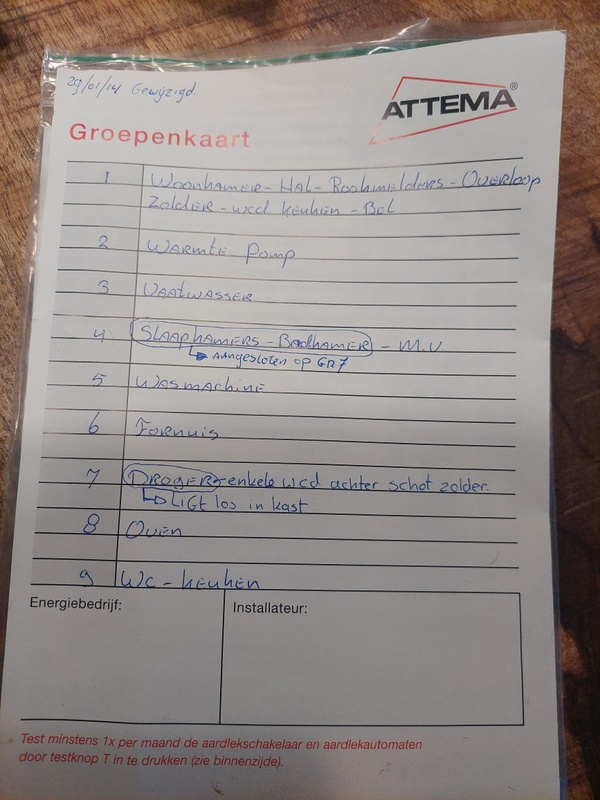 29/01/14 Gewijzigd.
ATTEMA®
Groepenkaart
1 Woonkamer - Hal - Rookmelders - Overloop
Zolder - wcd keuken - Bel
2 Warmte pomp
3 Vaatwasser
4 Slaapkamers - Badkamer - M.V
↳ Aangesloten op GR7
5 Wasmachine
6 Fornuis
7 Droger - enkele wcd achter schot zolder.
↳ Ligt los in kast
8 Oven
9 Wc - keuken
Energiebedrijf:
Installateur:
Test minstens 1x per maand de aardlekschakelaar en aardlekautomaten
door testknop T in te drukken (zie binnenzijde).